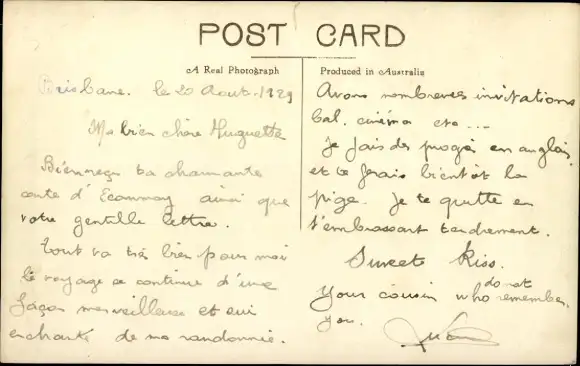 POST CARD
A Real Photograph
Produced in Australia
Brisbane. le 20 Août. 1929
Ma bien chère Huguette
Bien reçu ta charmante
carte d' Ecommoy ainsi que
votre gentille lettre.
Tout va très bien pour moi
le voyage se continue d'une
façon merveilleuse et suis
enchanté de ma randonnée.
Avons nombreuses invitations
bal. cinéma etc...
Je fais des progrès en anglais
et te ferais bientôt la
pige. Je te quitte en
t'embrassant tendrement.
Sweete Kiss.
Your cousin who do not remember
you.